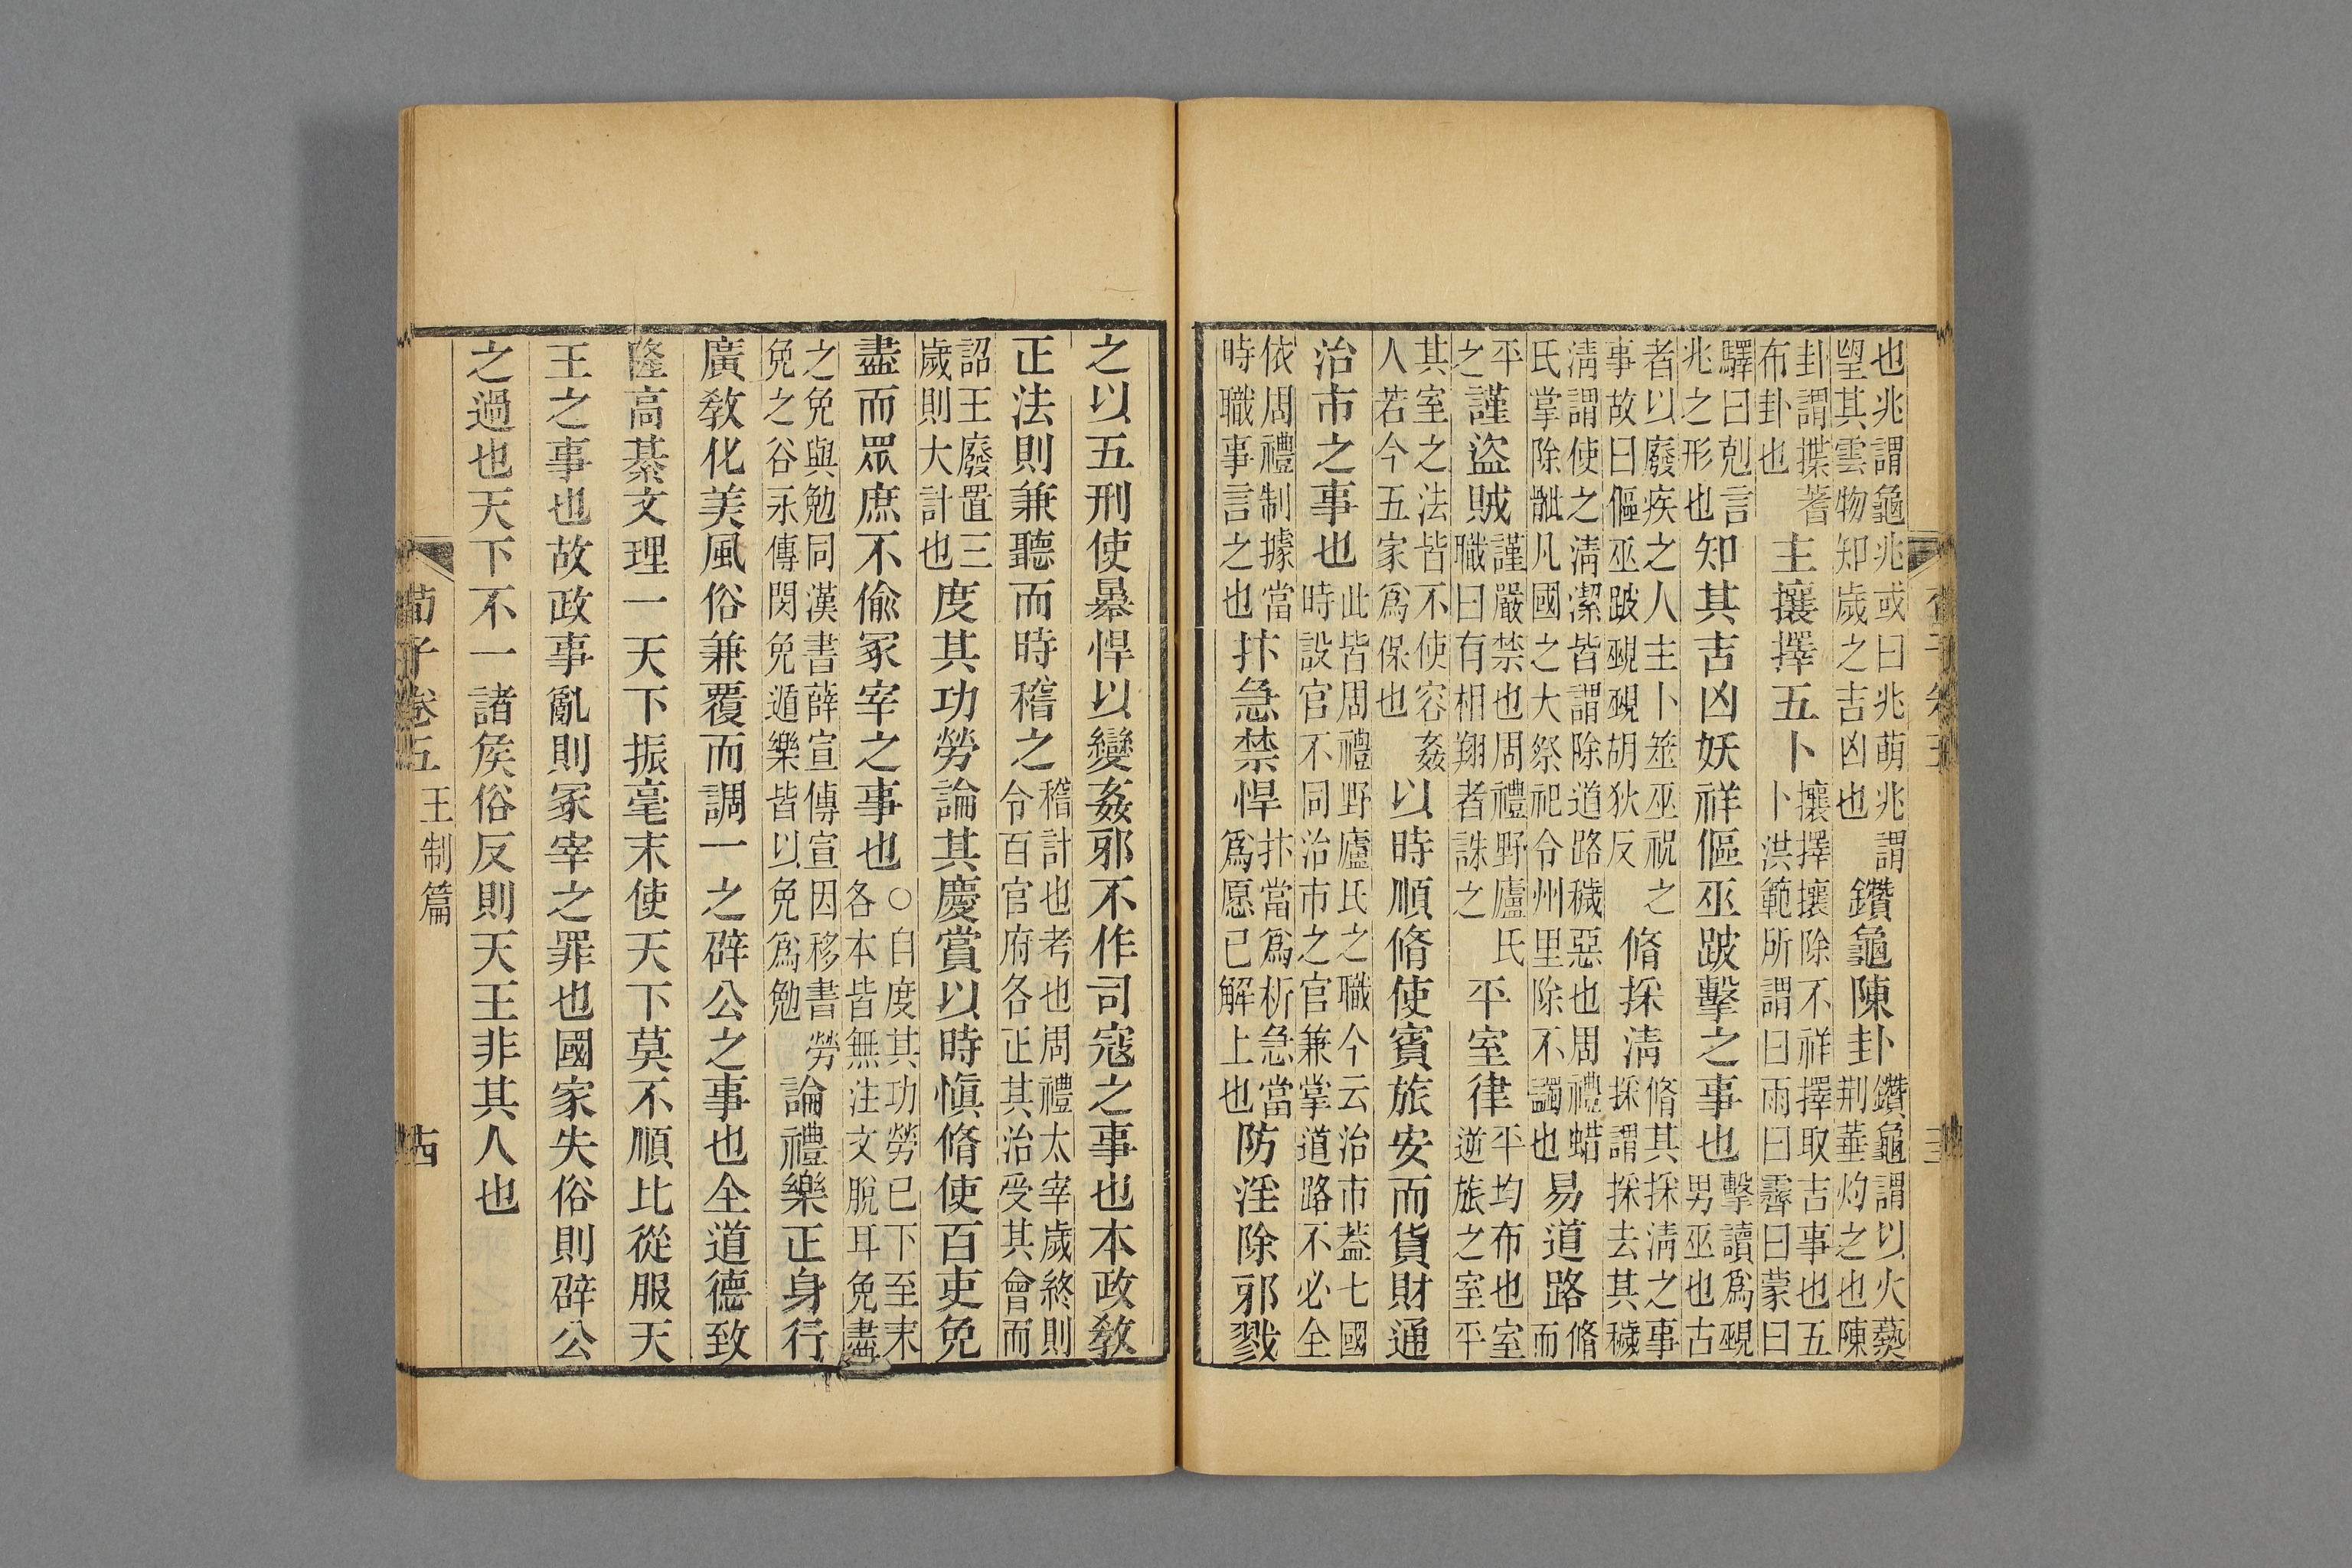 也兆謂龜兆或曰兆萌兆謂
望其雲物知歲之吉凶也
鑽龜陳卦
鑽龜謂以火爇
荆華灼之也陳
卦謂揲蓍
布卦也
主攘擇五卜
攘擇攘除不祥擇取吉事也五
卜洪範所謂曰雨曰霽曰蒙曰
驛曰剋言
兆之形也
知其吉凶妖祥傴巫跛擊之事也
擊讀爲覡
男巫也古
者以廢疾之人主卜筮巫祝之
事故曰傴巫跛覡覡胡狄反
脩採清
脩其採清之事
採謂採去其穢
清謂使之清潔皆謂除道路穢惡也周禮蜡
氏掌除骴凡國之大祭祀令州里除不蠲也
易道路
脩
而
平
之
謹盜賊
謹嚴禁也周禮野廬氏
職曰有相翔者誅之
平室律
平均布也室
逆旅之室平
其室之法皆不使容姦
人若今五家爲保也
以時順脩使賓旅安而貨財通
治市之事也
此皆周禮野廬氏之職今云治市蓋七國
時設官不同治市之官兼掌道路不必全
依周禮制據當
時職事言之也
抃急禁悍
抃當爲析急當
爲愿已解上也
防淫除邪戮
之以五刑使暴悍以變姦邪不作司寇之事也本政敎
正法則兼聽而時稽之
稽計也考也周禮太宰歲終則
令百官府各正其治受其會而
詔王廢置三
歲則大計也
度其功勞論其慶賞以時愼脩使百吏免
盡而眾庶不偷冢宰之事也
○自度其功勞已下至末
各本皆無注文脫耳免盡
之免與勉同漢書薛宣傳宣因移書勞
免之谷永傳閔免遁樂皆以免爲勉
論禮樂正身行
廣敎化美風俗兼覆而調一之辟公之事也全道德致
隆高綦文理一天下振毫末使天下莫不順比從服天
王之事也故政事亂則冢宰之罪也國家失俗則辟公
之過也天下不一諸侯俗反則天王非其人也
荀子卷五
王制篇